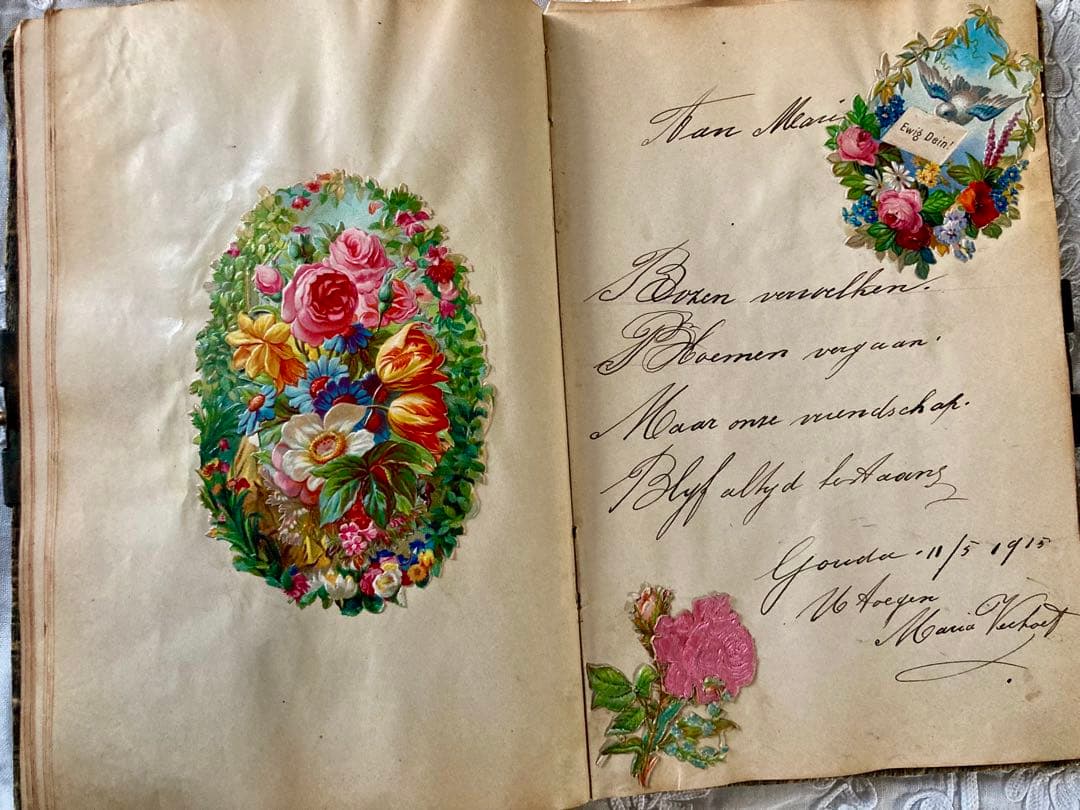 Aan Mari
Ewig Dein!
Rozen verwelken.
Bloemen vergaan.
Maar onze vriendschap.
Blyf altyd bestaan
Gouda. 11/5 1915
Maria Verhoef